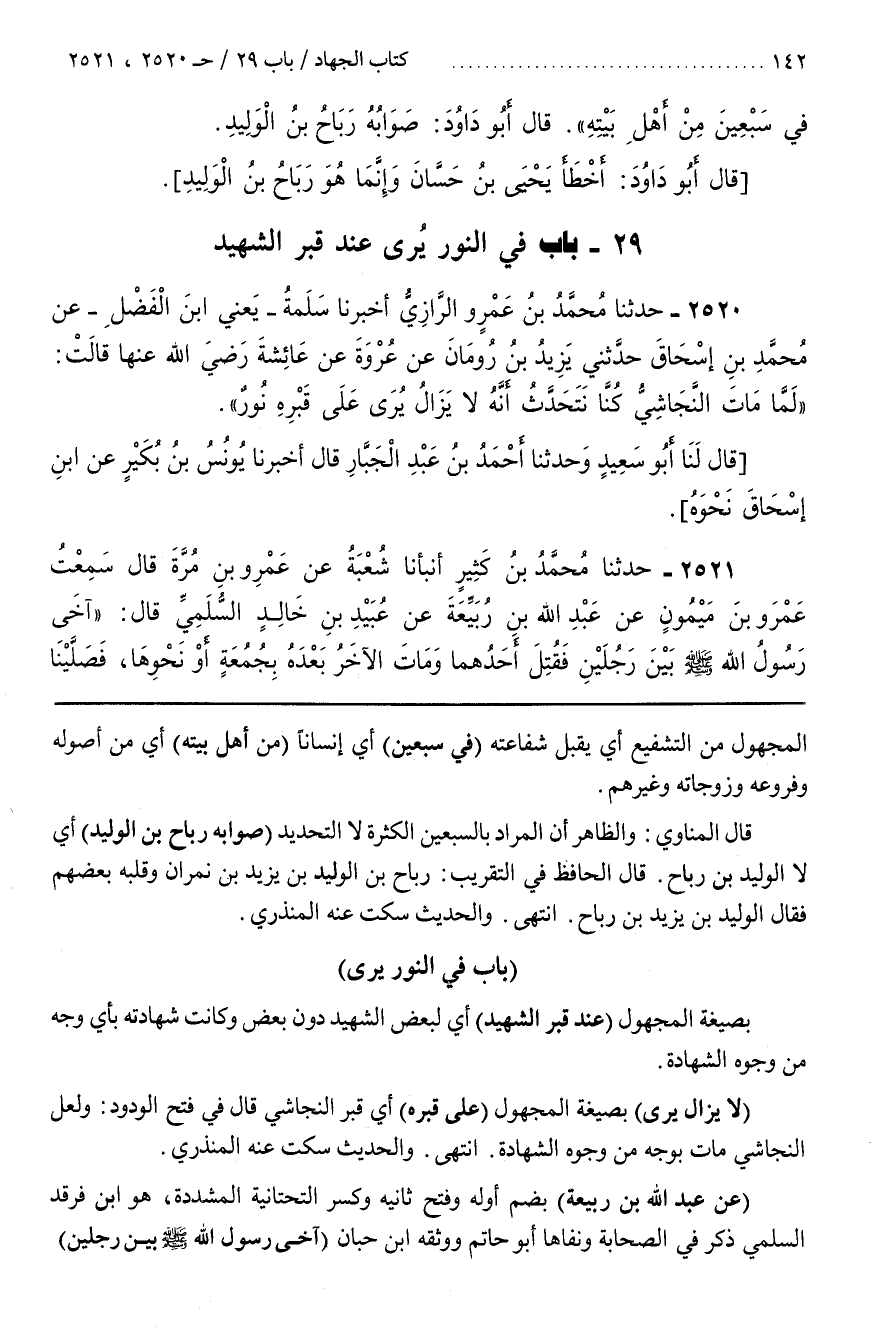 ١٤٢ ..................................... كتاب الجهاد / باب ٢٩ / حـ ٢٥٢٠ ، ٢٥٢١
في سَبْعِينَ مِنْ أَهْلِ بَيْتِهِ». قال أَبُو دَاوُدَ: صَوَابُهُ رَبَاحُ بنُ الْوَلِيدِ.
[قال أَبُو دَاوُدَ: أَخْطَأَ يَحْيَى بنُ حَسَّانَ وَإِنَّمَا هُوَ رَبَاحُ بنُ الْوَلِيدِ].
٢٩ ـ باب في النور يُرى عند قبر الشهيد
٢٥٢٠ ـ حدثنا مُحمَّدُ بنُ عَمْرٍو الرَّازِيُّ أخبرنا سَلَمةُ ـ يَعني ابنَ الْفَضْلِ ـ عن
مُحمَّدِ بنِ إسْحَاقَ حدَّثني يَزِيدُ بنُ رُومَانَ عن عُرْوَةَ عن عَائِشةَ رَضيَ الله عنها قالَتْ:
«لَمَّا مَاتَ النَّجَاشِيُّ كُنَّا نَتَحَدَّثُ أَنَّهُ لا يَزَالُ يُرَى عَلَى قَبْرِهِ نُورٌ».
[قال لَنَا أَبُو سَعِيدٍ وَحدثنا أَحْمَدُ بنُ عَبْدِ الْجَبَّارِ قال أخبرنا يُونُسُ بنُ بُكَيْرٍ عن ابنِ
إسْحَاقَ نَحْوَهُ].
٢٥٢١ ـ حدثنا مُحمَّدُ بنُ كَثِيرٍ أنبأنا شُعْبَةُ عن عَمْرِو بنِ مُرَّةَ قال سَمِعْتُ
عَمْرَو بنَ مَيْمُونٍ عن عَبْدِ الله بنِ رُبَيِّعَةَ عن عُبَيْدِ بنِ خَالِدٍ السُّلَمِيِّ قال: «آخَى
رَسُولُ الله ﷺ بَيْنَ رَجُلَيْنِ فَقُتِلَ أَحَدُهما وَمَاتَ الآخَرُ بَعْدَهُ بِجُمُعَةٍ أَوْ نَحْوِهَا، فَصَلَّيْنَا
المجهول من التشفيع أي يقبل شفاعته (في سبعين) أي إنساناً (من أهل بيته) أي من أصوله
وفروعه وزوجاته وغيرهم.
قال المناوي: والظاهر أن المراد بالسبعين الكثرة لا التحديد (صوابه رباح بن الوليد) أي
لا الوليد بن رباح. قال الحافظ في التقريب: رباح بن الوليد بن يزيد بن نمران وقلبه بعضهم
فقال الوليد بن يزيد بن رباح. انتهى. والحديث سكت عنه المنذري.
(باب في النور يرى)
بصيغة المجهول (عند قبر الشهيد) أي لبعض الشهيد دون بعض وكانت شهادته بأي وجه
من وجوه الشهادة.
(لا يزال يرى) بصيغة المجهول (على قبره) أي قبر النجاشي قال في فتح الودود: ولعل
النجاشي مات بوجه من وجوه الشهادة. انتهى. والحديث سكت عنه المنذري.
(عن عبد الله بن ربيعة) بضم أوله وفتح ثانيه وكسر التحتانية المشددة، هو ابن فرقد
السلمي ذكر في الصحابة ونفاها أبو حاتم ووثقه ابن حبان (آخى رسول الله ﷺ بين رجلين)